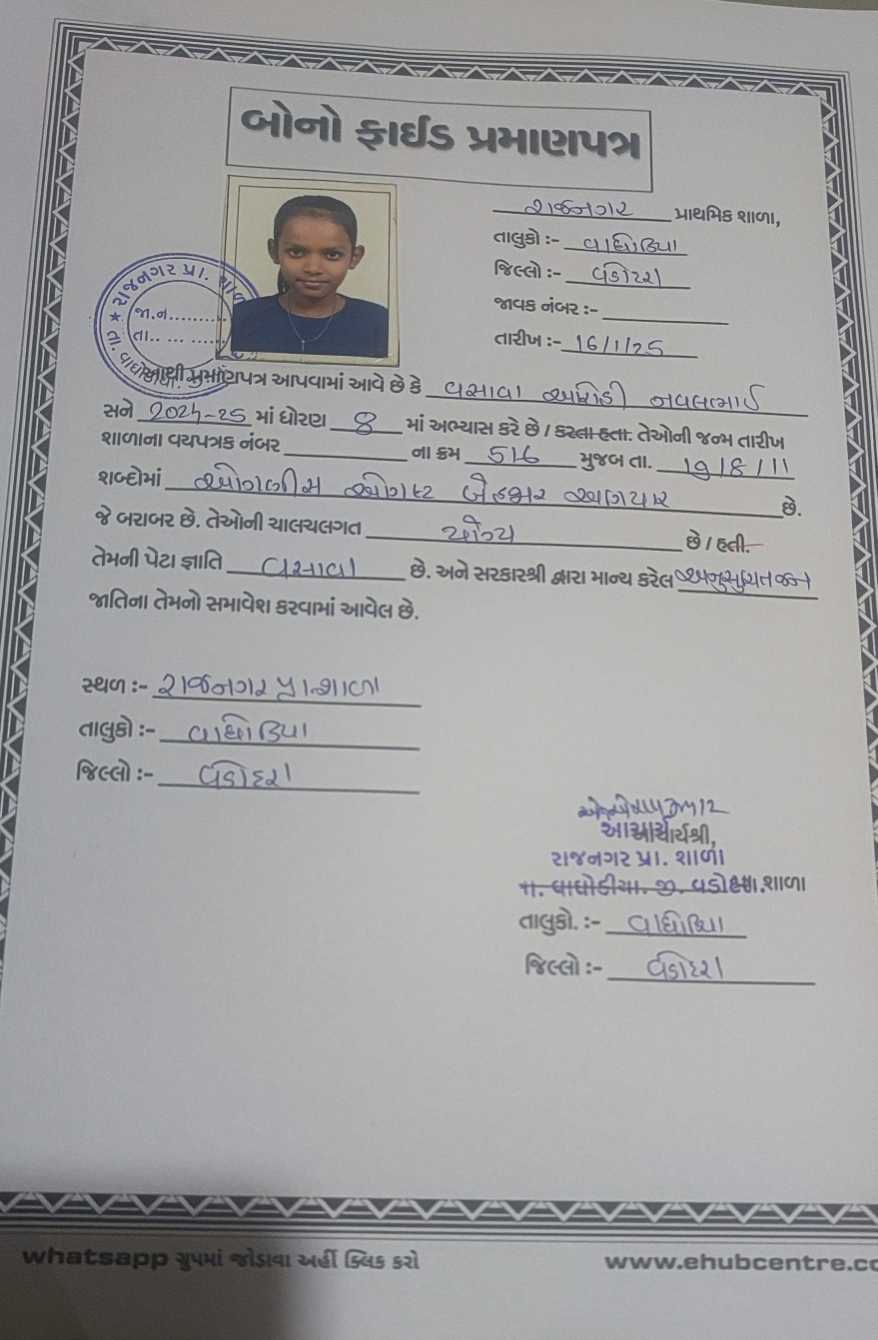 બોનો ફાઈડ પ્રમાણપત્ર
રાજનગર પ્રાથમિક શાળા,
તાલુકો :- વાઘોડિયા
જિલ્લો :- વડોદરા
જાવક નંબર :-
તારીખ :- 16/1/25
★ રાજનગર પ્રા.
જા.નં.........
તા.. ... ......
આથી પ્રમાણપત્ર આપવામાં આવે છે કે વસાવા નવલભાઈ
સને 2024-25 માં ધોરણ 8 માં અભ્યાસ કરે છે / કરતા હતા. તેઓની જન્મ તારીખ
શાળાના વયપત્રક નંબર ના ક્રમ 516 મુજબ તા. 19/8/11
શબ્દોમાં ઓગણીસ ઓગષ્ટ બે હજાર અગિયાર છે.
જે બરાબર છે. તેઓની ચાલચલગત યોગ્ય છે / હતી.
તેમની પેટા જ્ઞાતિ વસાવા છે. અને સરકારશ્રી દ્વારા માન્ય કરેલ અનુસુચિત જન
જાતિના તેમનો સમાવેશ કરવામાં આવેલ છે.
સ્થળ :- રાજનગર પ્રા શાળા
તાલુકો :- વાઘોડિયા
જિલ્લો :- વડોદરા
આચાર્યશ્રી,
રાજનગર પ્રા. શાળા
તા. વાઘોડીયા. જી. વડોદરા. શાળા
તાલુકો. :- વાઘોડિયા
જિલ્લો :- વડોદરા
whatsapp ગ્રુપમાં જોડાવા અહીં ક્લિક કરો
www.ehubcentre.co